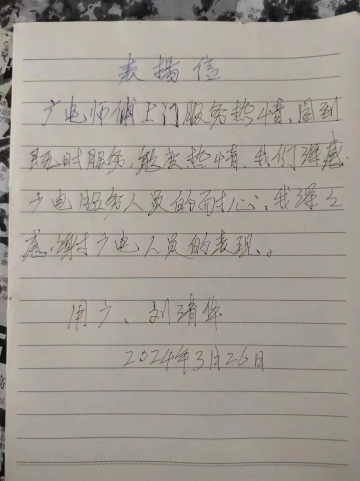 表扬信
广电师傅上门服务热情、周到
及时服务，态度热情，我们深感
广电服务人员的耐心，我深之
感谢广电人员的表现。
用户、刘清华
2024年3月26日